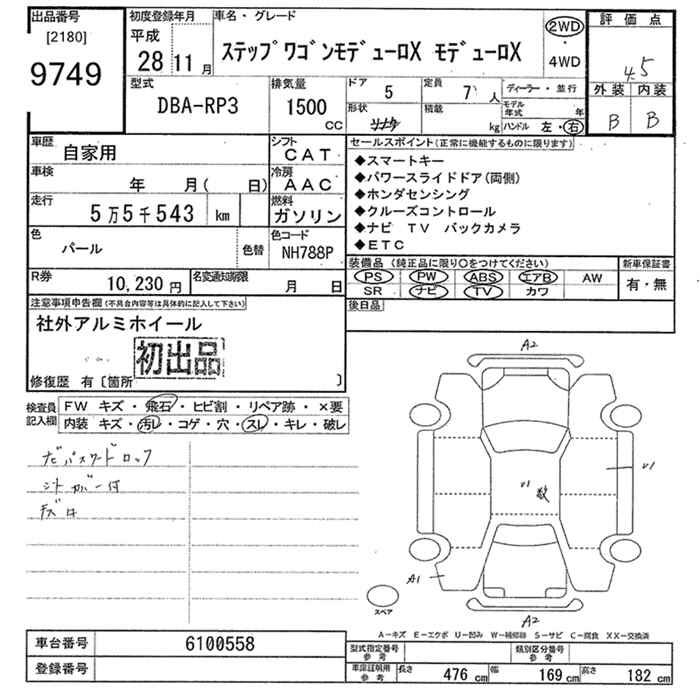 出品番号
[2180]
9749
初度登録年月
平成
28 11月
車名・グレード
ステップワゴンモデューロX モデューロX
2WD
・
4WD
評価点
4.5
外装 内装
B B
型式
DBA-RP3
排気量
1500
CC
ドア
5
定員
7 人
形状
積載
kg
ディーラー・並行
モデル年式 年
ハンドル 左・右
車歴
自家用
シフト
CAT
車検
年 月( 日)
冷房
AAC
走行
5万5千543 km
燃料
ガソリン
色
パール
色替
色コード
NH788P
R券
10,230円
名変通知期限
月 日
セールスポイント(正常に機能するものに限ります)
◆スマートキー
◆パワースライドドア(両側)
◆ホンダセンシング
◆クルーズコントロール
◆ナビ TV バックカメラ
◆ETC
装備品(純正品に限り○をつけてください)
PS PW ABS エアB AW
SR ナビ TV カワ
新車保証書
有・無
後日品
注意事項申告欄(不具合内容等は具体的に記入して下さい)
社外アルミホイール
初出品
修復歴 有〔箇所 〕
検査員記入欄
FW キズ・飛石・ヒビ割・リペア跡・×要
内装 キズ・汚レ・コゲ・穴・スレ・キレ・破レ
ナビパスワードロック
シートカバー付
A2
U1
U1
A1
A2
スペア
A-キズ E-エクボ U-凹み W-補修跡 S-サビ C-腐食 XX-交換済
車台番号
6100558
登録番号
型式指定番号
参考
類別区分番号
参考
車庫証明用
参考
長さ 476 cm 幅 169 cm 高さ 182 cm